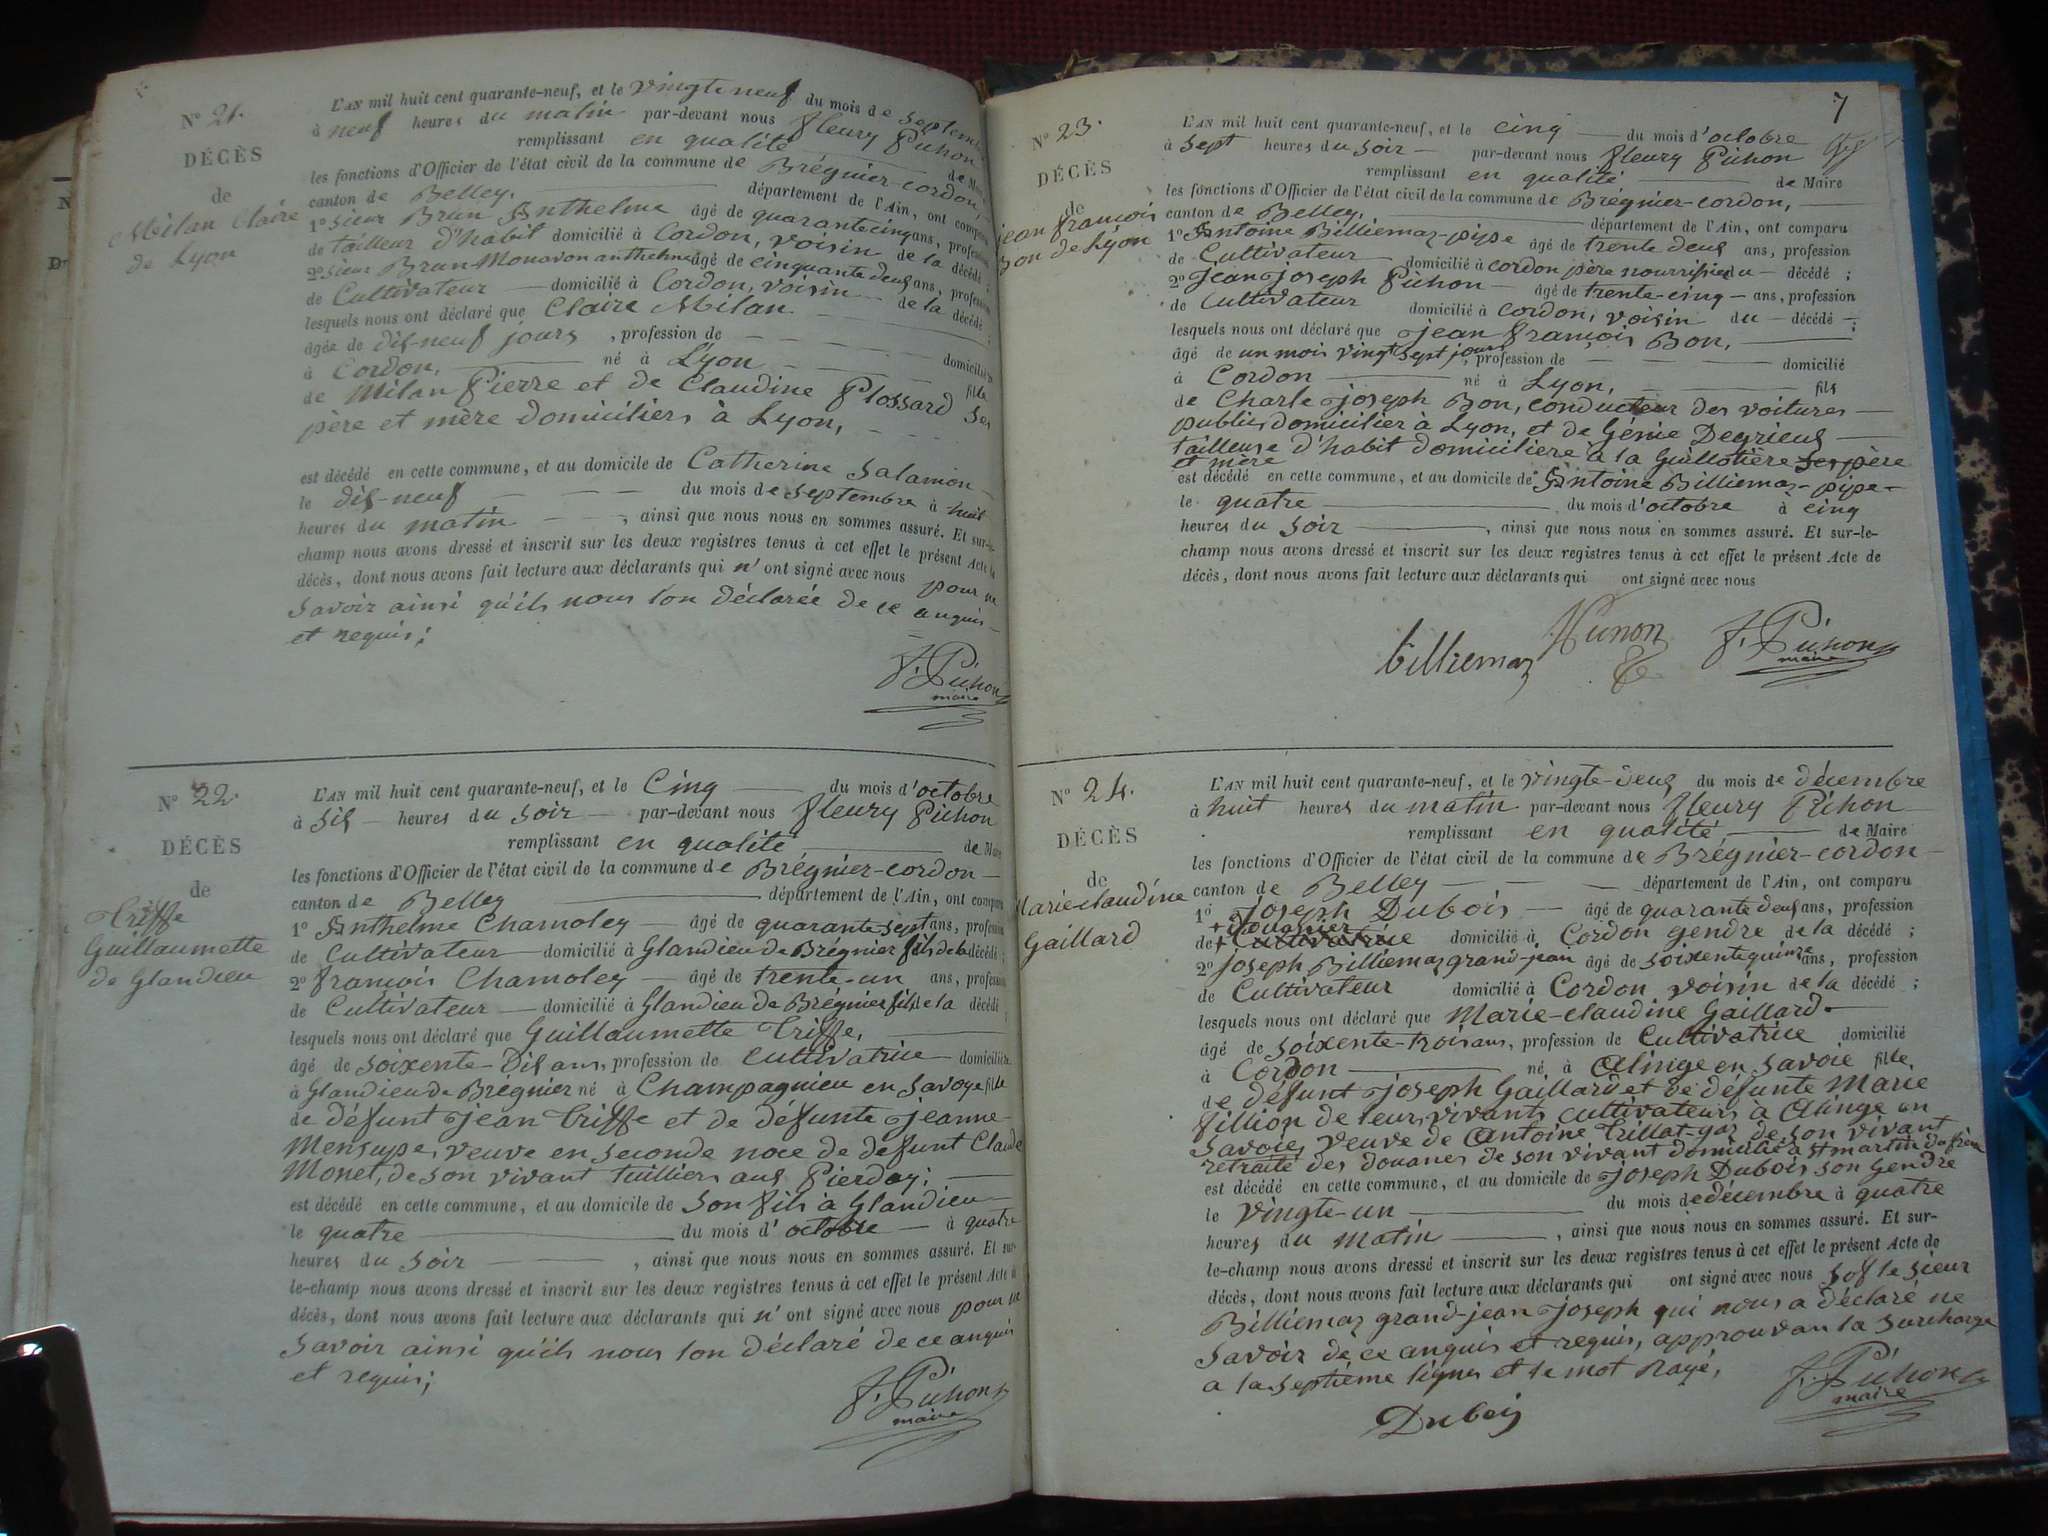 N° 21.
DÉCÈS
de
Milan Claire
de Lyon
L'AN mil huit cent quarante-neuf, et le vingt-neuf du mois de septembre
à neuf heures du matin par-devant nous fleury Pichon
remplissant en qualité de Maire
les fonctions d'Officier de l'état civil de la commune de Brégnier-cordon,
canton de Belley, département de l'Ain, ont comparu
1° sieur Brun Anthelme âgé de quarante cinq ans, profession
de tailleur d'habit domicilié à Cordon, voisin de la décédé ;
2° sieur Brun-Monavon anthelme âgé de cinquante deux ans, profession
de Cultivateur domicilié à Cordon, voisin de la décédé ;
lesquels nous ont déclaré que Claire Milan
âgée de dix-neuf jours, profession de
à Cordon, né à Lyon domiciliée fille
de Milan Pierre et de Claudine Plossard Ses
père et mère domiciliers à Lyon,
est décédé en cette commune, et au domicile de Catherine Salamon
le dix-neuf du mois de septembre à huit
heures du matin, ainsi que nous nous en sommes assuré. Et sur-le-
champ nous avons dressé et inscrit sur les deux registres tenus à cet effet le présent Acte de
décès, dont nous avons fait lecture aux déclarants qui n'ont signé avec nous pour ne
Savoir ainsi qu'ils nous l'on déclarée de ce anquis
et requis ;
F. Pichon
maire
N° 22.
DÉCÈS
de
Triffe
Guillaumette
de Glandieu
L'AN mil huit cent quarante-neuf, et le Cinq du mois d'octobre
à Six heures du Soir par-devant nous fleury Pichon
remplissant en qualité de Maire
les fonctions d'Officier de l'état civil de la commune de Brégnier-cordon
canton de Belley département de l'Ain, ont comparu
1° Anthelme Chamoley âgé de quarante-sept ans, profession
de Cultivateur domicilié à Glandieu de Brégnier fils de la décédé ;
2° françois Chamoley âgé de trente-un ans, profession
de Cultivateur domicilié à Glandieu de Brégnier fils de la décédé ;
lesquels nous ont déclaré que Guillaumette Triffe,
âgé de soixente-Dix ans, profession de Cultivatrice domiciliée
à Glandieu de Brégnier né à Champagnieu en Savoye fille
de défunt jean Triffe et de défunte jeanne
Mensupe, veuve en seconde noce de défunt Claude
Monet, de son vivant tuilliers aus Pierday ;
est décédé en cette commune, et au domicile de Son fils à Glandieu
le quatre du mois d'octobre à quatre
heures du Soir, ainsi que nous nous en sommes assuré. Et sur-
le-champ nous avons dressé et inscrit sur les deux registres tenus à cet effet le présent Acte de
décès, dont nous avons fait lecture aux déclarants qui n'ont signé avec nous pour ne
Savoir ainsi qu'ils nous l'on déclaré de ce anquis
et requis ;
F. Pichon
maire
7
N° 23.
DÉCÈS
de
jean françois
Bon de Lyon
L'AN mil huit cent quarante-neuf, et le cinq du mois d'octobre
à Sept heures du Soir par-devant nous fleury Pichon
remplissant en qualité de Maire
les fonctions d'Officier de l'état civil de la commune de Brégnier-cordon,
canton de Belley, département de l'Ain, ont comparu
1° Antoine Billiemaz-pipe âgé de trente deux ans, profession
de Cultivateur domicilié à cordon père nourrisier du décédé ;
2° Jean-joseph Pichon âgé de trente-cinq ans, profession
de Cultivateur domicilié à cordon, voisin du décédé ;
lesquels nous ont déclaré que jean françois Bon,
âgé de un mois vingt sept jours, profession de domicilié
à Cordon né à Lyon, fils
de Charle joseph Bon, conducteur des voitures
public, domicilier à Lyon, et de Génie Degrieux
tailleuse d'habit domiciliere à la Guillotière Ses père
et mère
est décédé en cette commune, et au domicile de Antoine Billiemaz-pipe
le quatre du mois d'octobre à cinq
heures du Soir, ainsi que nous nous en sommes assuré. Et sur-le-
champ nous avons dressé et inscrit sur les deux registres tenus à cet effet le présent Acte de
décès, dont nous avons fait lecture aux déclarants qui ont signé avec nous
billiemaz
F. Pichon
maire
N° 24.
DÉCÈS
de
Marie-claudine
Gaillard
L'AN mil huit cent quarante-neuf, et le vingte-deux du mois de décembre
à huit heures du matin par-devant nous fleury Pichon
remplissant en qualité de Maire
les fonctions d'Officier de l'état civil de la commune de Brégnier-cordon
canton de Belley département de l'Ain, ont comparu
1° Joseph Dubois âgé de quarante deux ans, profession
+ douanier
de + Cultivatrice domicilié à Cordon gendre de la décédé ;
2° joseph Billiemaz grand-jean âgé de soixente quinze ans, profession
de Cultivateur domicilié à Cordon voisin de la décédé ;
lesquels nous ont déclaré que Marie-claudine Gaillard
âgé de soixente-trois ans, profession de Cultivatrice domicilié
à Cordon né à Alinge en Savoie fille
de défunt joseph Gaillard et de défunte Marie
fillion de leur vivants cultivateurs à Alinge en
Savoie, veuve de Antoine Trillat-gaz de son vivant
retraité des douanes de son vivant domicilié à St martin du frène
est décédé en cette commune, et au domicile de joseph Dubois son Gendre
le vingte-un du mois de décembre à quatre
heures du matin, ainsi que nous nous en sommes assuré. Et sur-
le-champ nous avons dressé et inscrit sur les deux registres tenus à cet effet le présent Acte de
décès, dont nous avons fait lecture aux déclarants qui ont signé avec nous sof le sieur
Billiemaz grand-jean joseph qui nous a déclaré ne
Savoir de ce anquis et requis, approuvan la Surcharge
a la septième lignes et le mot Rayé,
F. Pichon
maire
Dubois